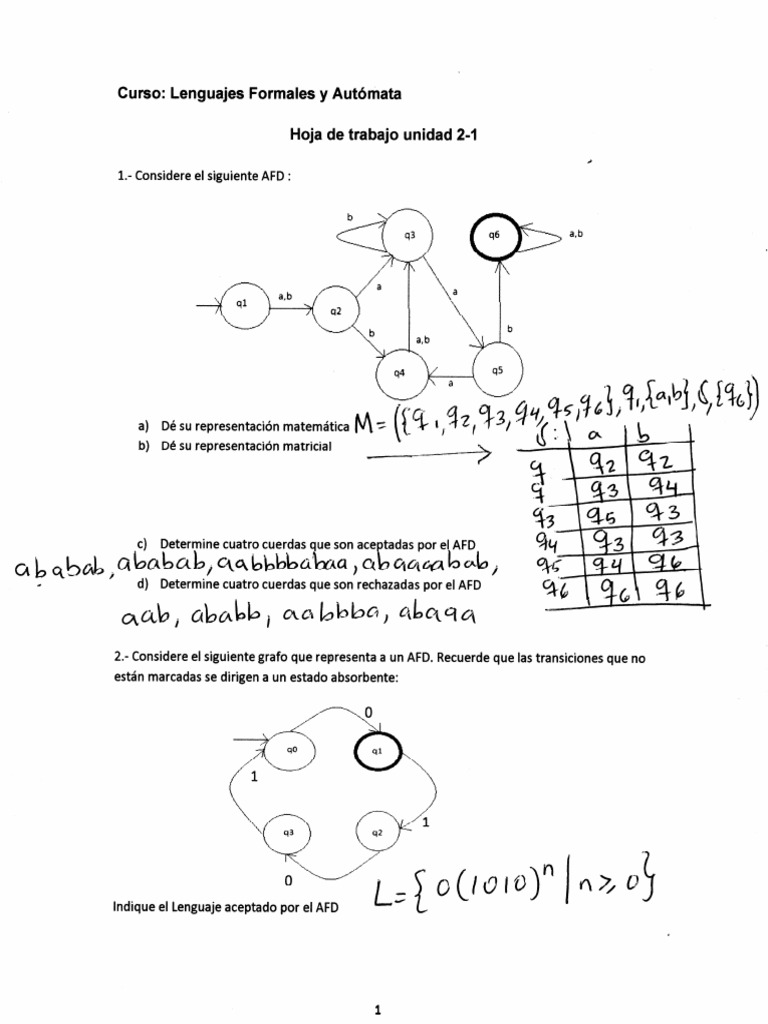 Curso: Lenguajes Formales y Autómata
Hoja de trabajo unidad 2-1
1.- Considere el siguiente AFD :
b
q3
q6
a,b
q1
a,b
a
a
q2
b
a,b
b
q4
a
q5
a) Dé su representación matemática M = ({q1, q2, q3, q4, q5, q6}, q1, {a,b}, δ, {q6})
b) Dé su representación matricial
δ: a b
q q2 q2
q q3 q4
q3 q5 q3
q4 q3 q3
q5 q4 q6
q6 q6 q6
c) Determine cuatro cuerdas que son aceptadas por el AFD
ababab, ababab, aabbbbabaa, abaaaabab,
d) Determine cuatro cuerdas que son rechazadas por el AFD
aab, ababb, aabbba, abaaa
2.- Considere el siguiente grafo que representa a un AFD. Recuerde que las transiciones que no
están marcadas se dirigen a un estado absorbente:
0
q0
q1
1
q3
q2
1
0
L={0(1010)ⁿ | n ≥ 0}
Indique el Lenguaje aceptado por el AFD
1